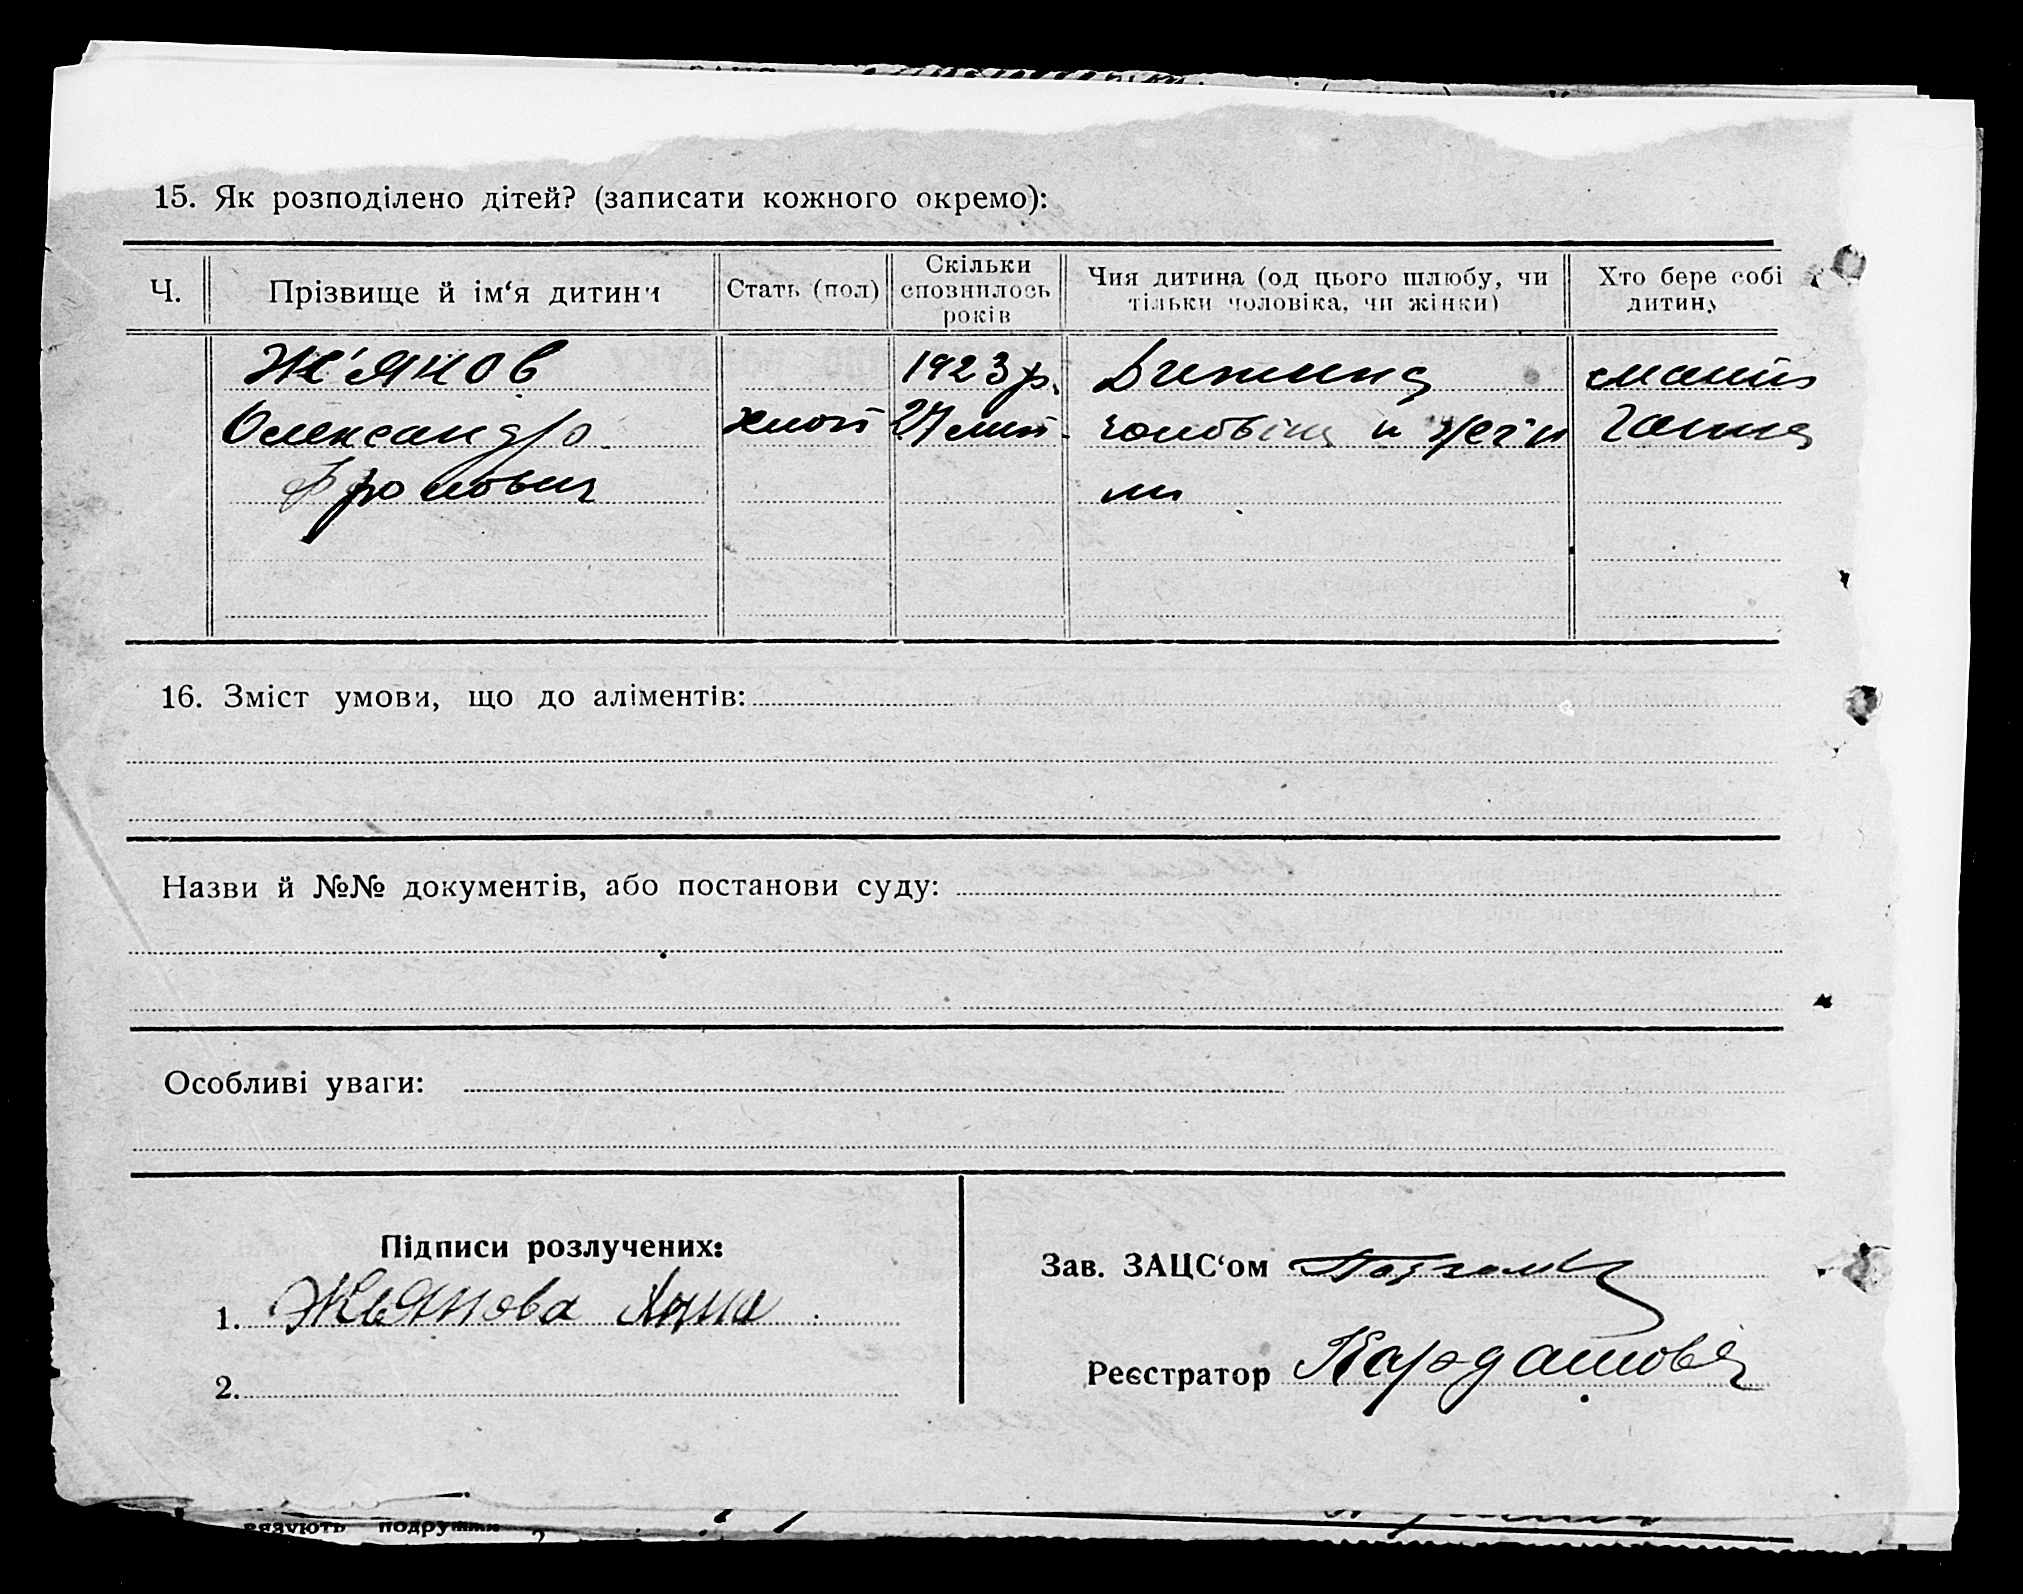 15. Як розподілено дітей? (записати кожного окремо):
Ч.
Прізвище й ім‘я дитини
Стать (пол)
Скільки
сповнилось
років
Чия дитина (од цього шлюбу, чи
тільки чоловіка, чи жінки)
Хто бере собі
дитину
Ж'янов
1923 р.
Дитина
Олександр
27
и
16. Зміст умови, що до аліментів:
Назви й №№ документів, або постанови суду:
Особливі уваги:
Підписи розлучених:
1. Жьянова Анна
2.
Зав. ЗАЦС‘ом
Реєстратор Кардашова
вязують подружжя